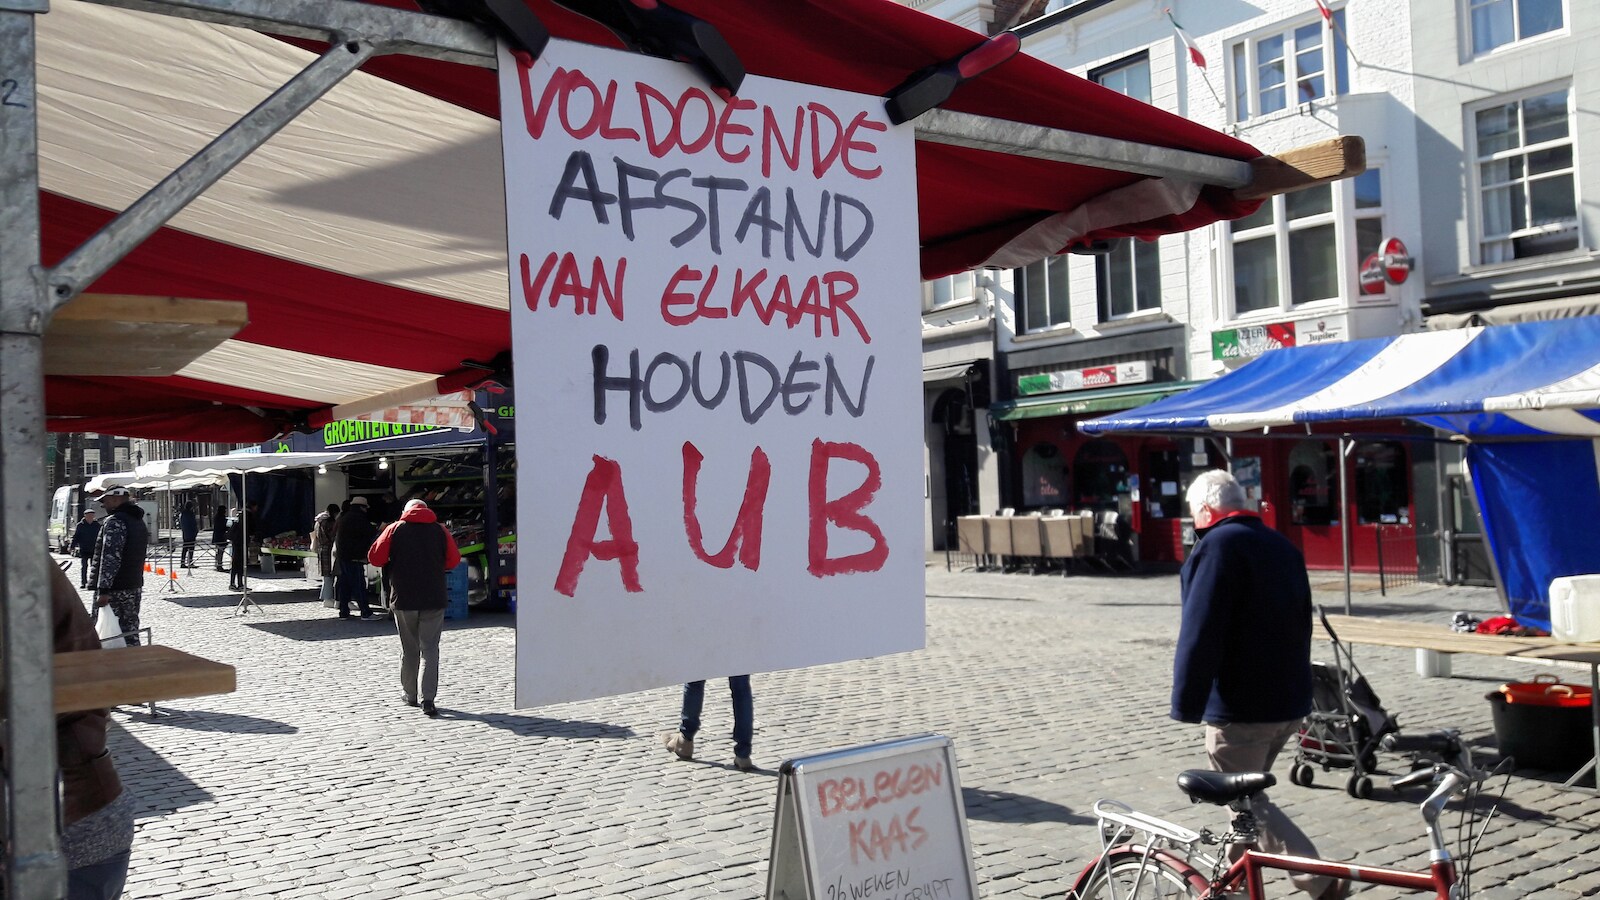 VOLDOENDE
AFSTAND
VAN ELKAAR
HOUDEN
AUB
GROENTEN &
BELEGEN
KAAS
26 WEKEN
Jupiler
2